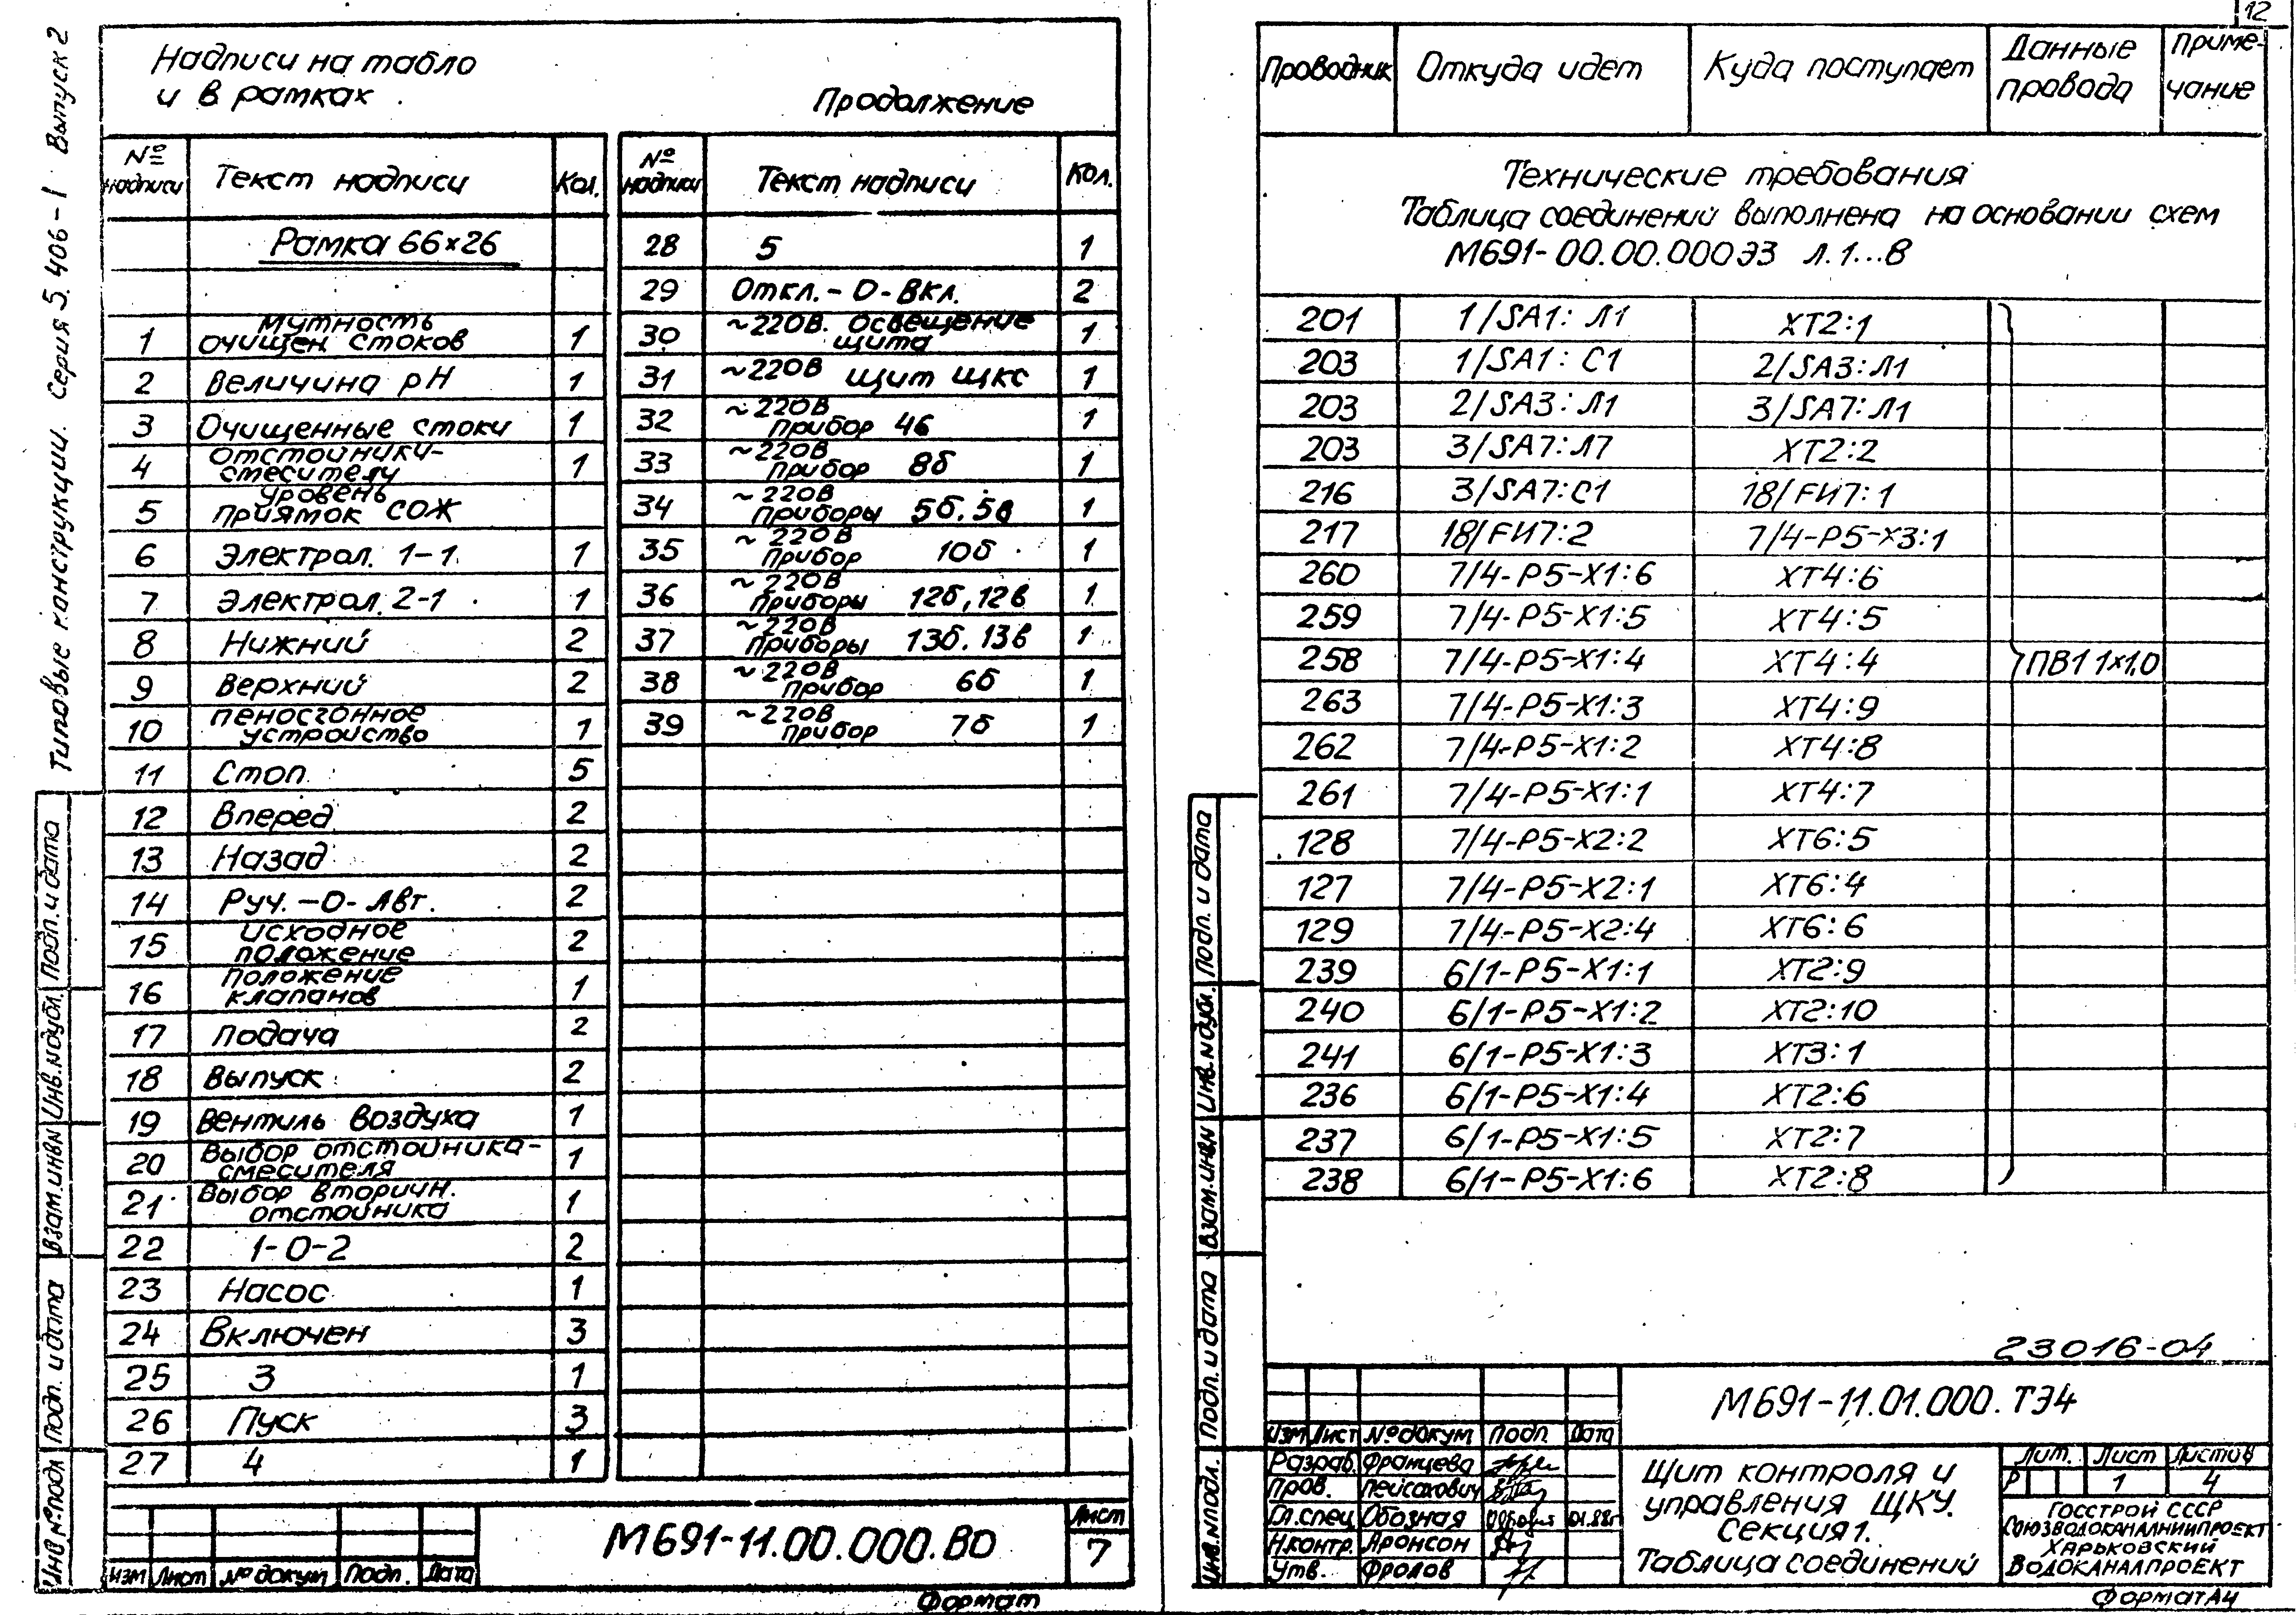 12
Типовые конструкции. Серия 5.406-1 Выпуск 2
Надписи на табло
и в рамках.
Продолжение
№ надписи | Текст надписи | Кол. | № надписи | Текст надписи | Кол.
Рамка 66×26 | 28 | 5 | 1
29 | Откл.-О-Вкл. | 2
1 | Мутность очищен стоков | 1 | 30 | ~220В. Освещение щита | 1
2 | Величина pH | 1 | 31 | ~220В щит ЩКС | 1
3 | Очищенные стоки | 1 | 32 | ~220В Прибор 4б | 1
4 | Отстойники-смесителу | 1 | 33 | ~220В Прибор 8б | 1
5 | Уровень Приямок СОЖ | 34 | ~220В Приборы 5б, 5в | 1
6 | Электрол. 1-1 | 1 | 35 | ~220В Прибор 10б | 1
7 | Электрол. 2-1 | 1 | 36 | ~220В Приборы 12б, 12в | 1
8 | Нижний | 2 | 37 | ~220В Приборы 13б. 13в | 1
9 | Верхний | 2 | 38 | ~220В Прибор 6б | 1
10 | Пеносгонное устройство | 1 | 39 | ~220В Прибор 7б | 1
11 | Стоп | 5
12 | Вперед | 2
13 | Назад | 2
14 | Руч.-О-Авт. | 2
15 | Исходное положение | 2
16 | Положение клапанов | 1
17 | Подача | 2
18 | Выпуск | 2
19 | Вентиль воздуха | 1
20 | Выбор отстойника-смесителя | 1
21 | Выбор вторичн. отстойника | 1
22 | 1-0-2 | 2
23 | Насос | 1
24 | Включен | 3
25 | 3 | 1
26 | Пуск | 3
27 | 4 | 1
Подп. и дата
Инв.№дубл.
Взам.инв№
Подп. и дата
Инв.№подл
М691-11.00.000.ВО
Лист
7
Изм Лист №докум Подп. Дата
Формат
Проводник | Откуда идет | Куда поступает | Данные провода | Приме-чание
Технические требования
Таблица соединений выполнена на основании схем
М691-00.00.000Э3 Л.1...8
201 | 1/SA1: Л1 | XT2:1
203 | 1/SA1: С1 | 2/SA3:Л1
203 | 2/SA3:Л1 | 3/SA7:Л1
203 | 3/SA7:Л7 | XT2:2
216 | 3/SA7:С1 | 18/FИ7:1
217 | 18/FИ7:2 | 7/4-P5-X3:1
260 | 7/4-P5-X1:6 | XT4:6
259 | 7/4-P5-X1:5 | XT4:5
258 | 7/4-P5-X1:4 | XT4:4 | ПВ1 1×1,0
263 | 7/4-P5-X1:3 | XT4:9
262 | 7/4-P5-X1:2 | XT4:8
261 | 7/4-P5-X1:1 | XT4:7
128 | 7/4-P5-X2:2 | XT6:5
127 | 7/4-P5-X2:1 | XT6:4
129 | 7/4-P5-X2:4 | XT6:6
239 | 6/1-P5-X1:1 | XT2:9
240 | 6/1-P5-X1:2 | XT2:10
241 | 6/1-P5-X1:3 | XT3:1
236 | 6/1-P5-X1:4 | XT2:6
237 | 6/1-P5-X1:5 | XT2:7
238 | 6/1-P5-X1:6 | XT2:8
Подп. и дата
Инв.№дубл.
Взам.инв№
Подп. и дата
Инв.№подл.
23016-04
М691-11.01.000.ТЭ4
Изм Лист №докум Подп. Дата
Разраб. Францева
Пров. Пейсахович
Гл.спец Обозная 01.88г
Н.контр. Аронсон
Утв. Фролов
Щит контроля и
управления ЩКУ.
Секция 1.
Таблица соединений
Лит. Лист Листов
Р 1 4
ГОССТРОЙ СССР
СОЮЗВОДОКАНАЛНИИПРОЕКТ
ХАРЬКОВСКИЙ
ВОДОКАНАЛПРОЕКТ
Формат А4